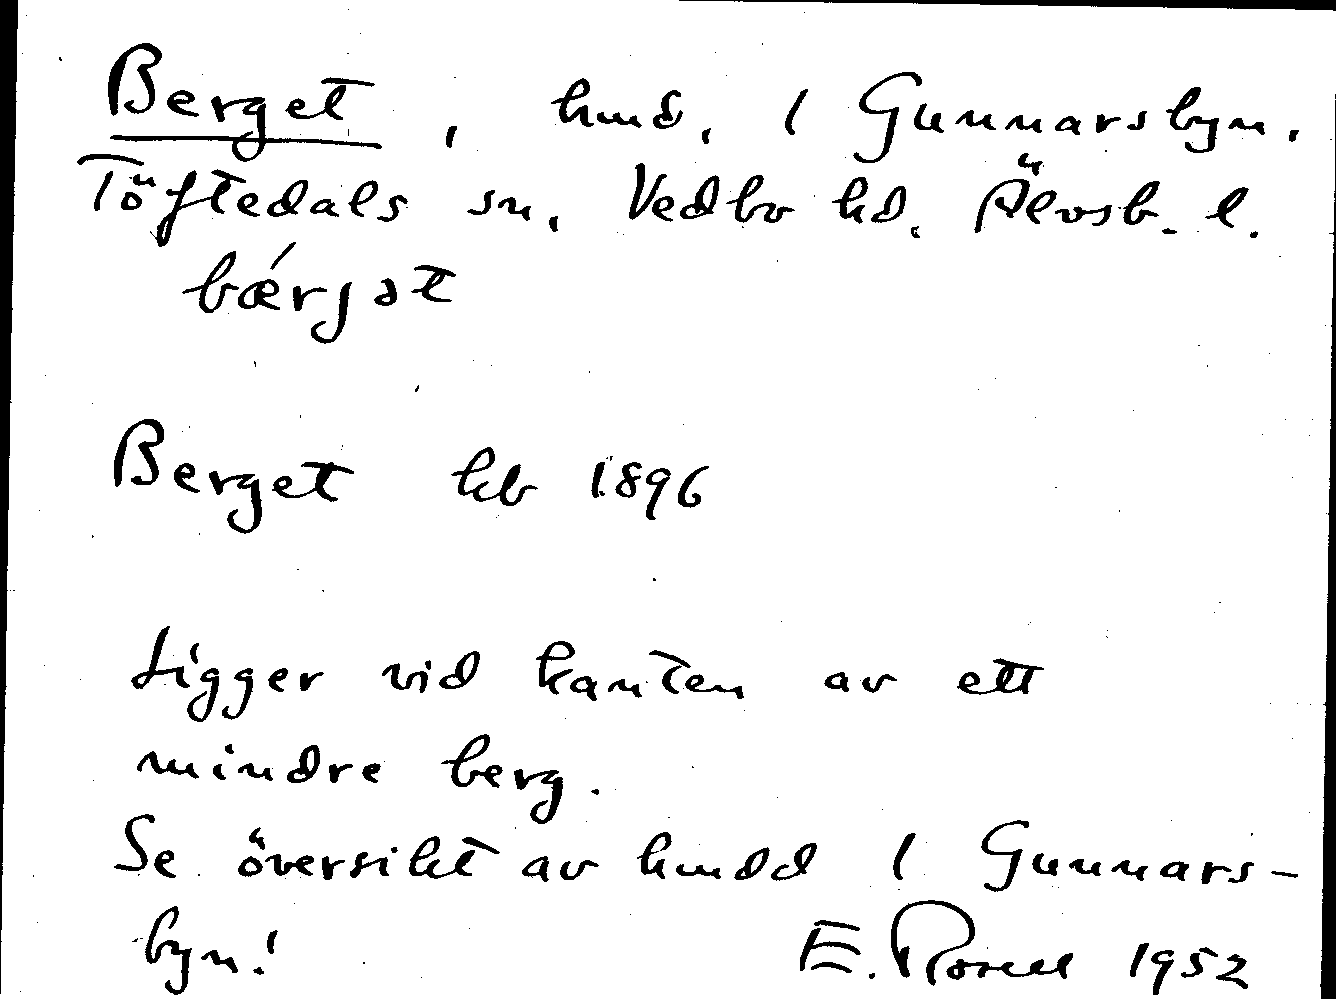 Berget, hmd, / Gunnarsbyn.
Töftedals sn, Vedbo hd. Älvsb. l.
bǽrjət
Berget hb 1896
Ligger vid kanten av ett
mindre berg.
Se översikt av hmdd / Gunnars-
byn!
E. Rosell 1952